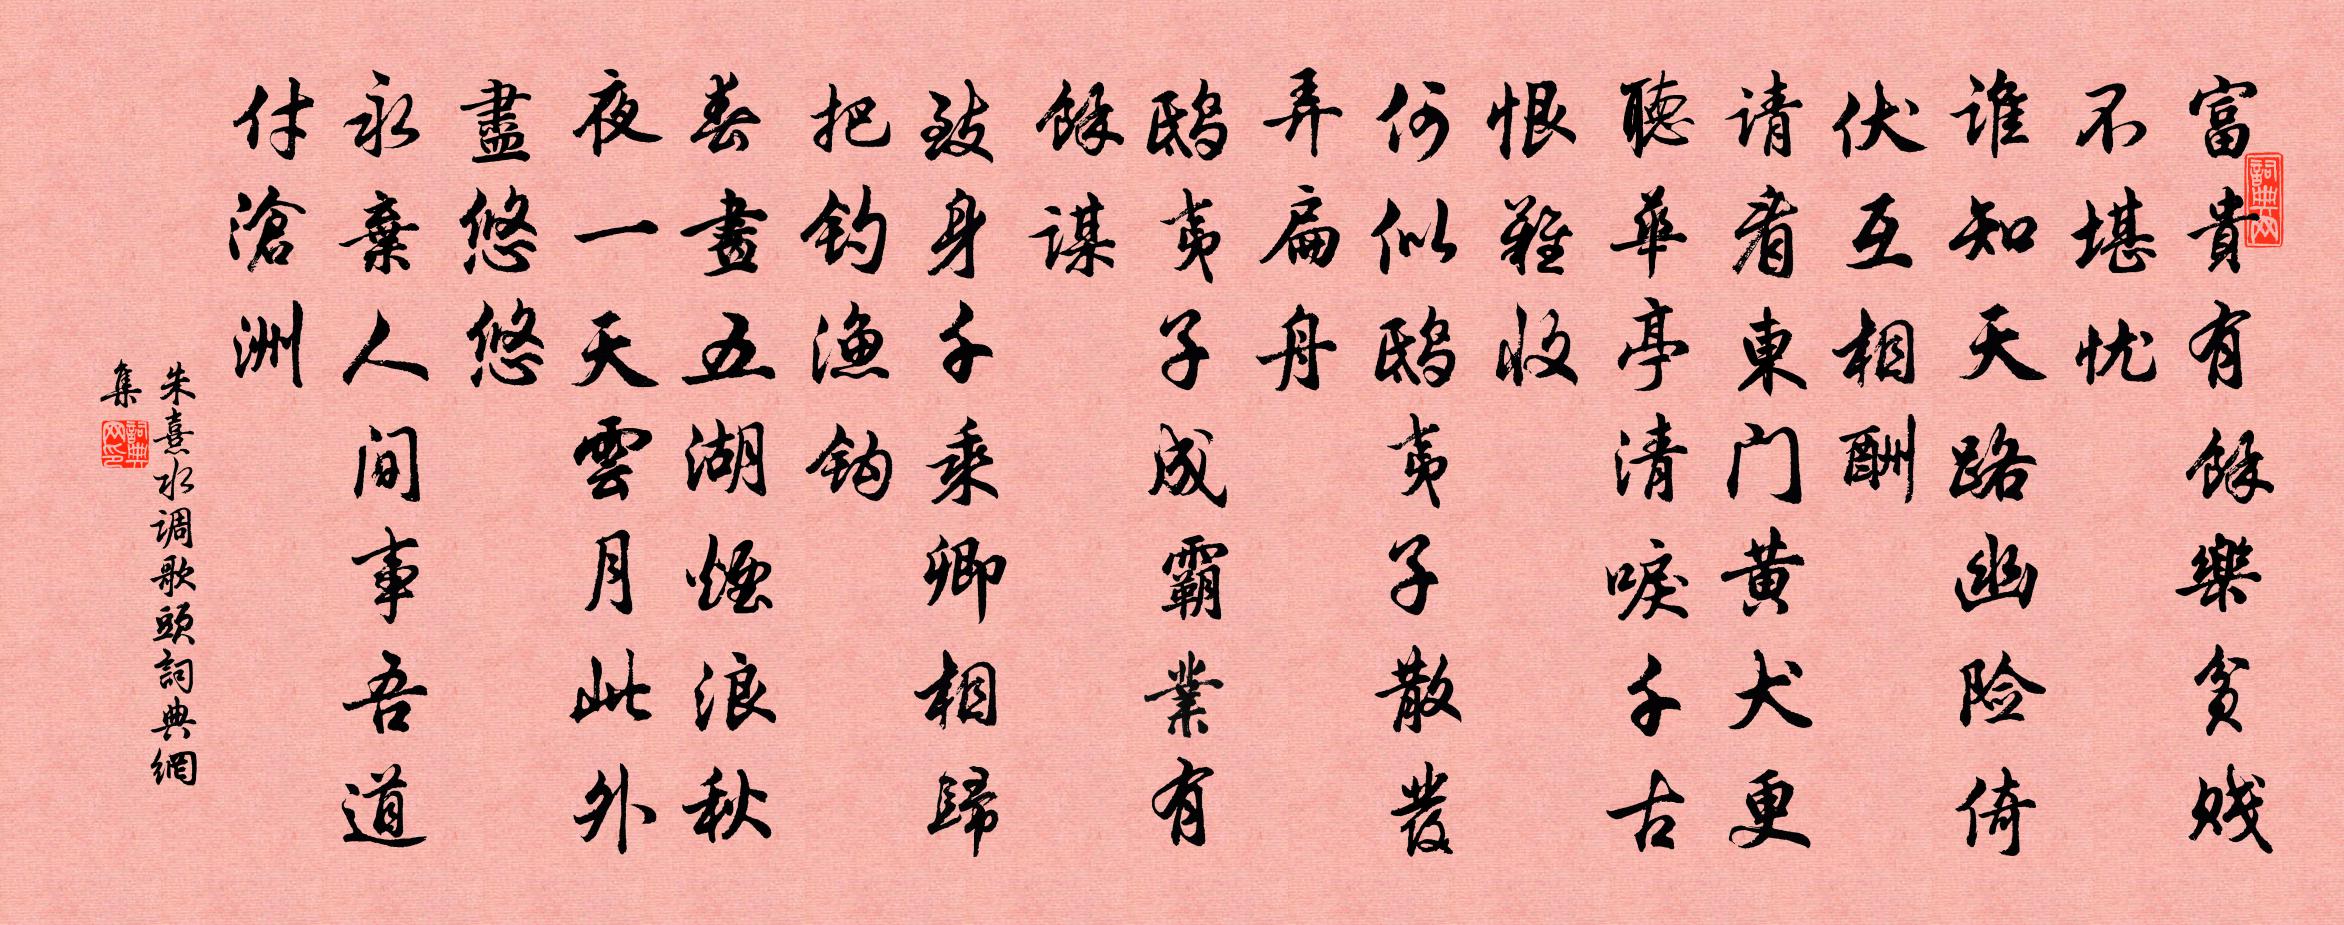 富貴有餘樂貧賤
不堪忧
谁知天路幽险倚
伏互相酬
请看東门黄犬更
聽華亭清唳千古
恨難收
何似鴟夷子散發
弄扁舟
鴟夷子成霸業有
餘谋
致身千乘卿相歸
把钓渔钩
春晝五湖煙浪秋
夜一天雲月此外
盡悠悠
永棄人间事吾道
付滄洲
朱熹水调歌頭詞典網
集
詞典网
詞典网印